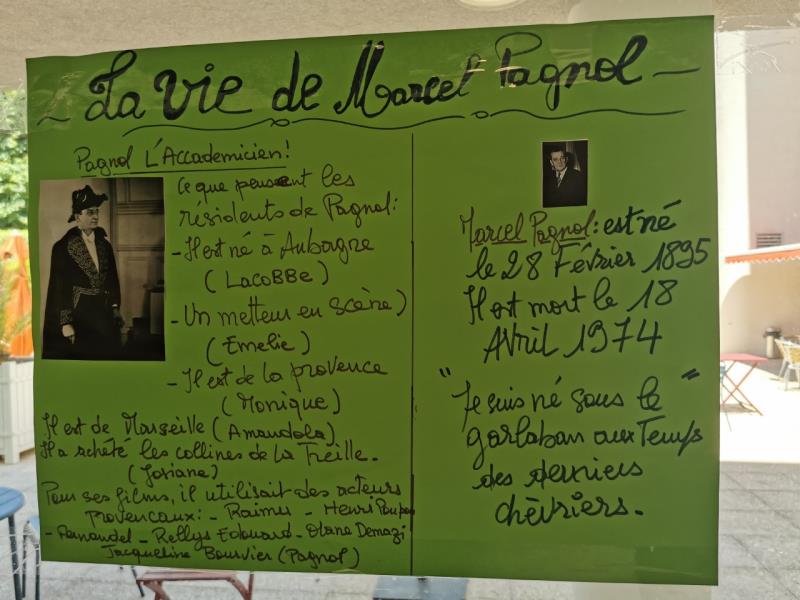 La vie de Marcel Pagnol
Pagnol L'Accademicien!
Ce que pensent les
résidents de Pagnol:
- Il est né à Aubagne
(LacoBBe)
- Un metteur en scène)
(Emelie)
- Il est de la provence
(Monique)
Il est de Marseille (Amandola)
Il a acheté les collines de la Treille.
(Josiane)
Pour ses films, il utilisait des acteurs
provencaux: - Raimu - Henri
- Fernandel - Rellys Edouard - Orane Demazi
Jacqueline Bouvier (Pagnol)
Marcel Pagnol: est né
le 28 Février 1895
Il est mort le 18
Avril 1974
"Je suis né sous le "
garlaban aux Temps
des derniers
chèvriers.